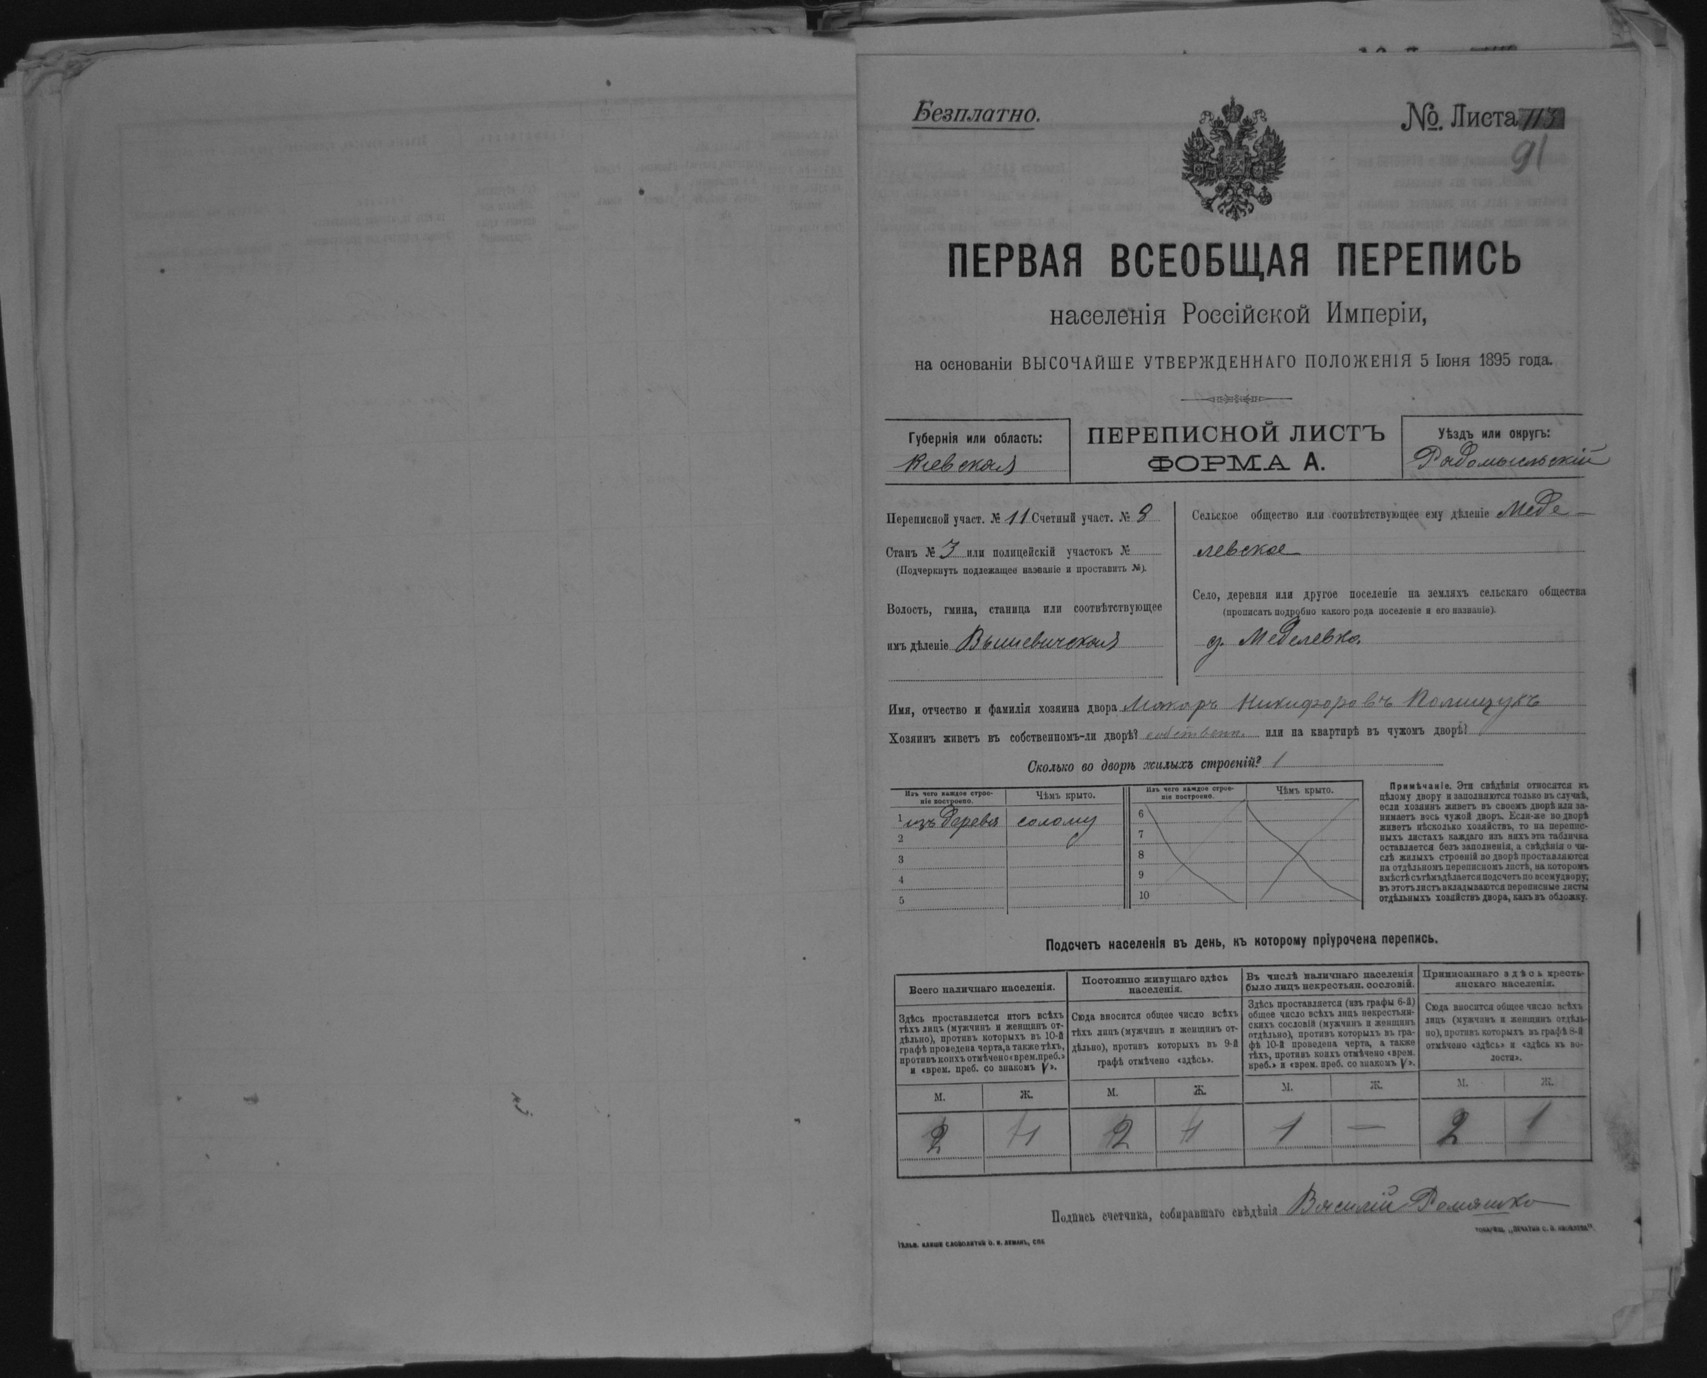 Безплатно.
№. Листа 113
91
ПЕРВАЯ ВСЕОБЩАЯ ПЕРЕПИСЬ
населенія Россійской Имперіи,
на основаніи ВЫСОЧАЙШЕ УТВЕРЖДЕННАГО ПОЛОЖЕНІЯ 5 Іюня 1895 года.
Губернія или область:
Кіевская
ПЕРЕПИСНОЙ ЛИСТЪ
ФОРМА А.
Уѣздъ или округъ:
Радомысльскій
Переписной участ. № 11 Счетный участ. № 9
Станъ № 3 или полицейскій участокъ №
(Подчеркнуть подлежащее названіе и проставить №).
Волость, гмина, станица или соотвѣтствующее
имъ дѣленіе Вышевичская
Сельское общество или соотвѣтствующее ему дѣленіе Меде-
левское
Село, деревня или другое поселеніе на земляхъ сельскаго общества
(прописать подробно какого рода поселеніе и его названіе).
д. Меделевка.
Имя, отчество и фамилія хозяина двора Макаръ Никифоровъ Полищукъ
Хозяинъ живетъ въ собственномъ-ли дворѣ? собственн. или на квартирѣ въ чужомъ дворѣ?
Сколько во дворѣ жилыхъ строеній? 1
Изъ чего каждое строе-
ніе построено.
Чѣмъ крыто.
1 изъ дерева солому
2
3
4
5
Изъ чего каждое строе-
ніе построено.
Чѣмъ крыто.
6
7
8
9
10
Примѣчаніе. Эти свѣдѣнія относятся къ
цѣлому двору и заполняются только въ случаѣ,
если хозяинъ живетъ въ своемъ дворѣ или за-
нимаетъ весь чужой дворъ. Если-же во дворѣ
живетъ нѣсколько хозяйствъ, то на перепис-
ныхъ листахъ каждаго изъ нихъ эта табличка
оставляется безъ заполненія, а свѣдѣнія о чи-
слѣ жилыхъ строеній во дворѣ проставляются
на отдѣльномъ переписномъ листѣ, на которомъ
вмѣстѣ съ тѣмъ дѣлается подсчетъ по всему двору;
въ этотъ листъ вкладываются переписные листы
отдѣльныхъ хозяйствъ двора, какъ въ обложку.
Подсчетъ населенія въ день, къ которому пріурочена перепись.
Всего наличнаго населенія.
Здѣсь проставляется итогъ всѣхъ
тѣхъ лицъ (мужчинъ и женщинъ от-
дѣльно), противъ которыхъ въ 10-й
графѣ проведена черта, а также тѣхъ,
противъ коихъ отмѣчено «врем. преб.»
и «врем. преб. со знакомъ V».
М. Ж.
2 4
Постоянно живущаго здѣсь
населенія.
Сюда вносится общее число всѣхъ
тѣхъ лицъ (мужчинъ и женщинъ от-
дѣльно), противъ которыхъ въ 9-й
графѣ отмѣчено «здѣсь».
М. Ж.
2 4
Въ числѣ наличнаго населенія
было лицъ некрестьян. сословій.
Здѣсь проставляется (изъ графы 6-й)
общее число всѣхъ лицъ некрестьян-
скихъ сословій (мужчинъ и женщинъ
отдѣльно), противъ которыхъ въ гра-
фѣ 10-й проведена черта, а также
тѣхъ, противъ коихъ отмѣчено «врем.
преб.» и «врем. преб. со знакомъ V».
М. Ж.
1 —
Приписаннаго здѣсь кресть-
янскаго населенія.
Сюда вносится общее число всѣхъ
лицъ (мужчинъ и женщинъ отдѣль-
но), противъ которыхъ въ графѣ 8-й
отмѣчено «здѣсь» и «здѣсь въ во-
лости».
М. Ж.
2 1
Подпись счетчика, собиравшаго свѣдѣнія Василій Ромашко